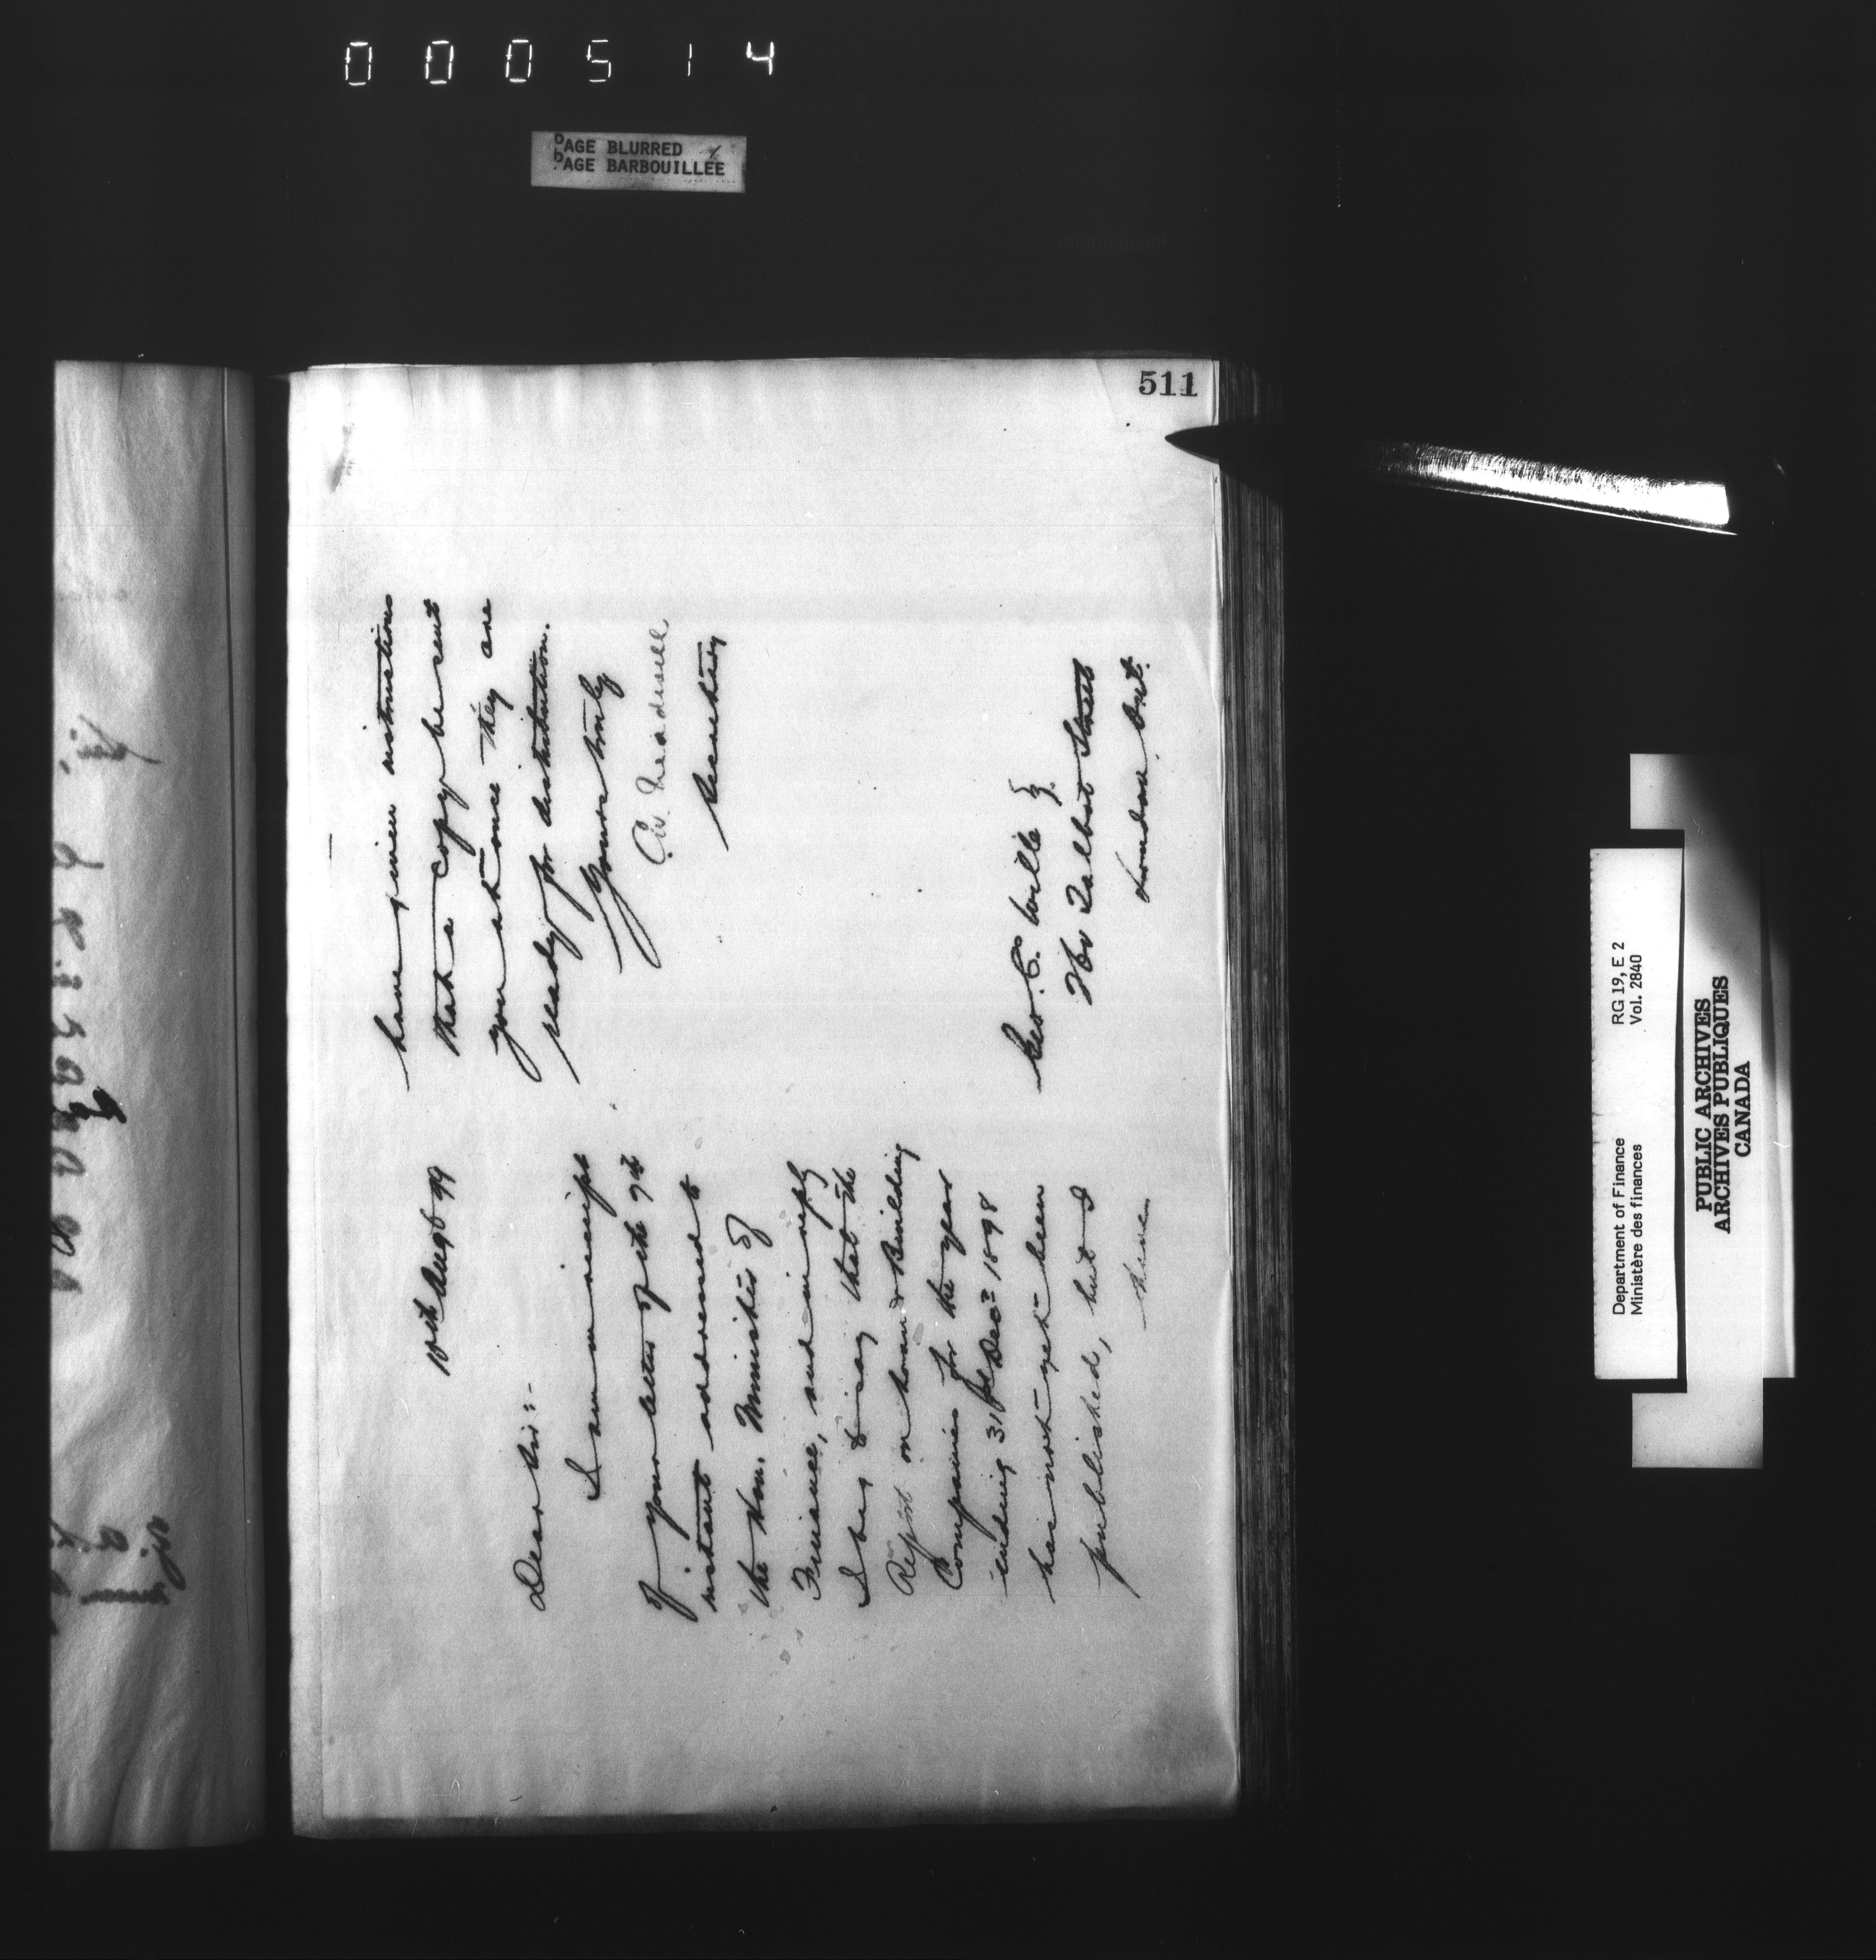 000514
PAGE BLURRED
PAGE BARBOUILLEE
511
10th Augt 99
Dear Sir:-
I am in receipt
of your letter of the 9th
instant addressed to
the Hon. Minister of
Finance, and in reply
I beg to say that the
Report on Loan & Building
Companies for the year
ending 31st Decr 1898
has not yet been
published, but I
have
have given instructions
that a copy be sent
you at once they are
ready for distribution.
Yours truly
Secretary
Geo. C.
Talbot Street
London Ont.
Department of Finance RG 19, E 2
Ministère des finances Vol. 2840
PUBLIC ARCHIVES
ARCHIVES PUBLIQUES
CANADA